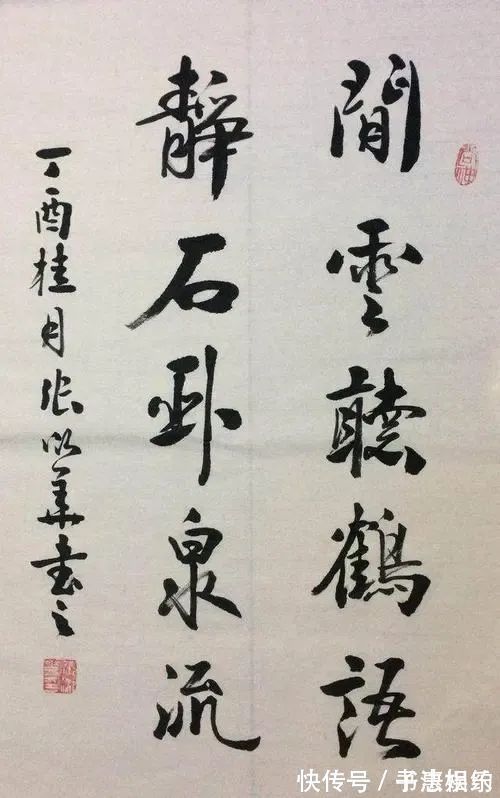 閒雲聽鶴語
靜石卧泉流
丁酉桂月張以華書之
快传号/书法娱乐